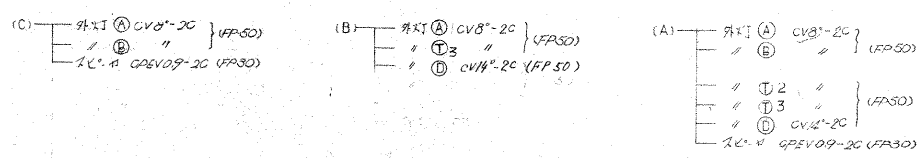 (C) 外灯 Ⓐ CV8°-2C
〃 Ⓑ 〃 (FP50)
スピーカ CPEV0.9-2C (FP30)
(B) 外灯 Ⓐ CV8°-2C
〃 Ⓣ3 〃 (FP50)
〃 Ⓓ CV14°-2C (FP50)
(A) 外灯 Ⓐ CV8°-2C
〃 Ⓑ 〃 (FP50)
〃 Ⓣ2 〃
〃 Ⓣ3 〃 (FP50)
〃 Ⓓ CV14°-2C
スピーカ CPEV0.9-2C (FP30)